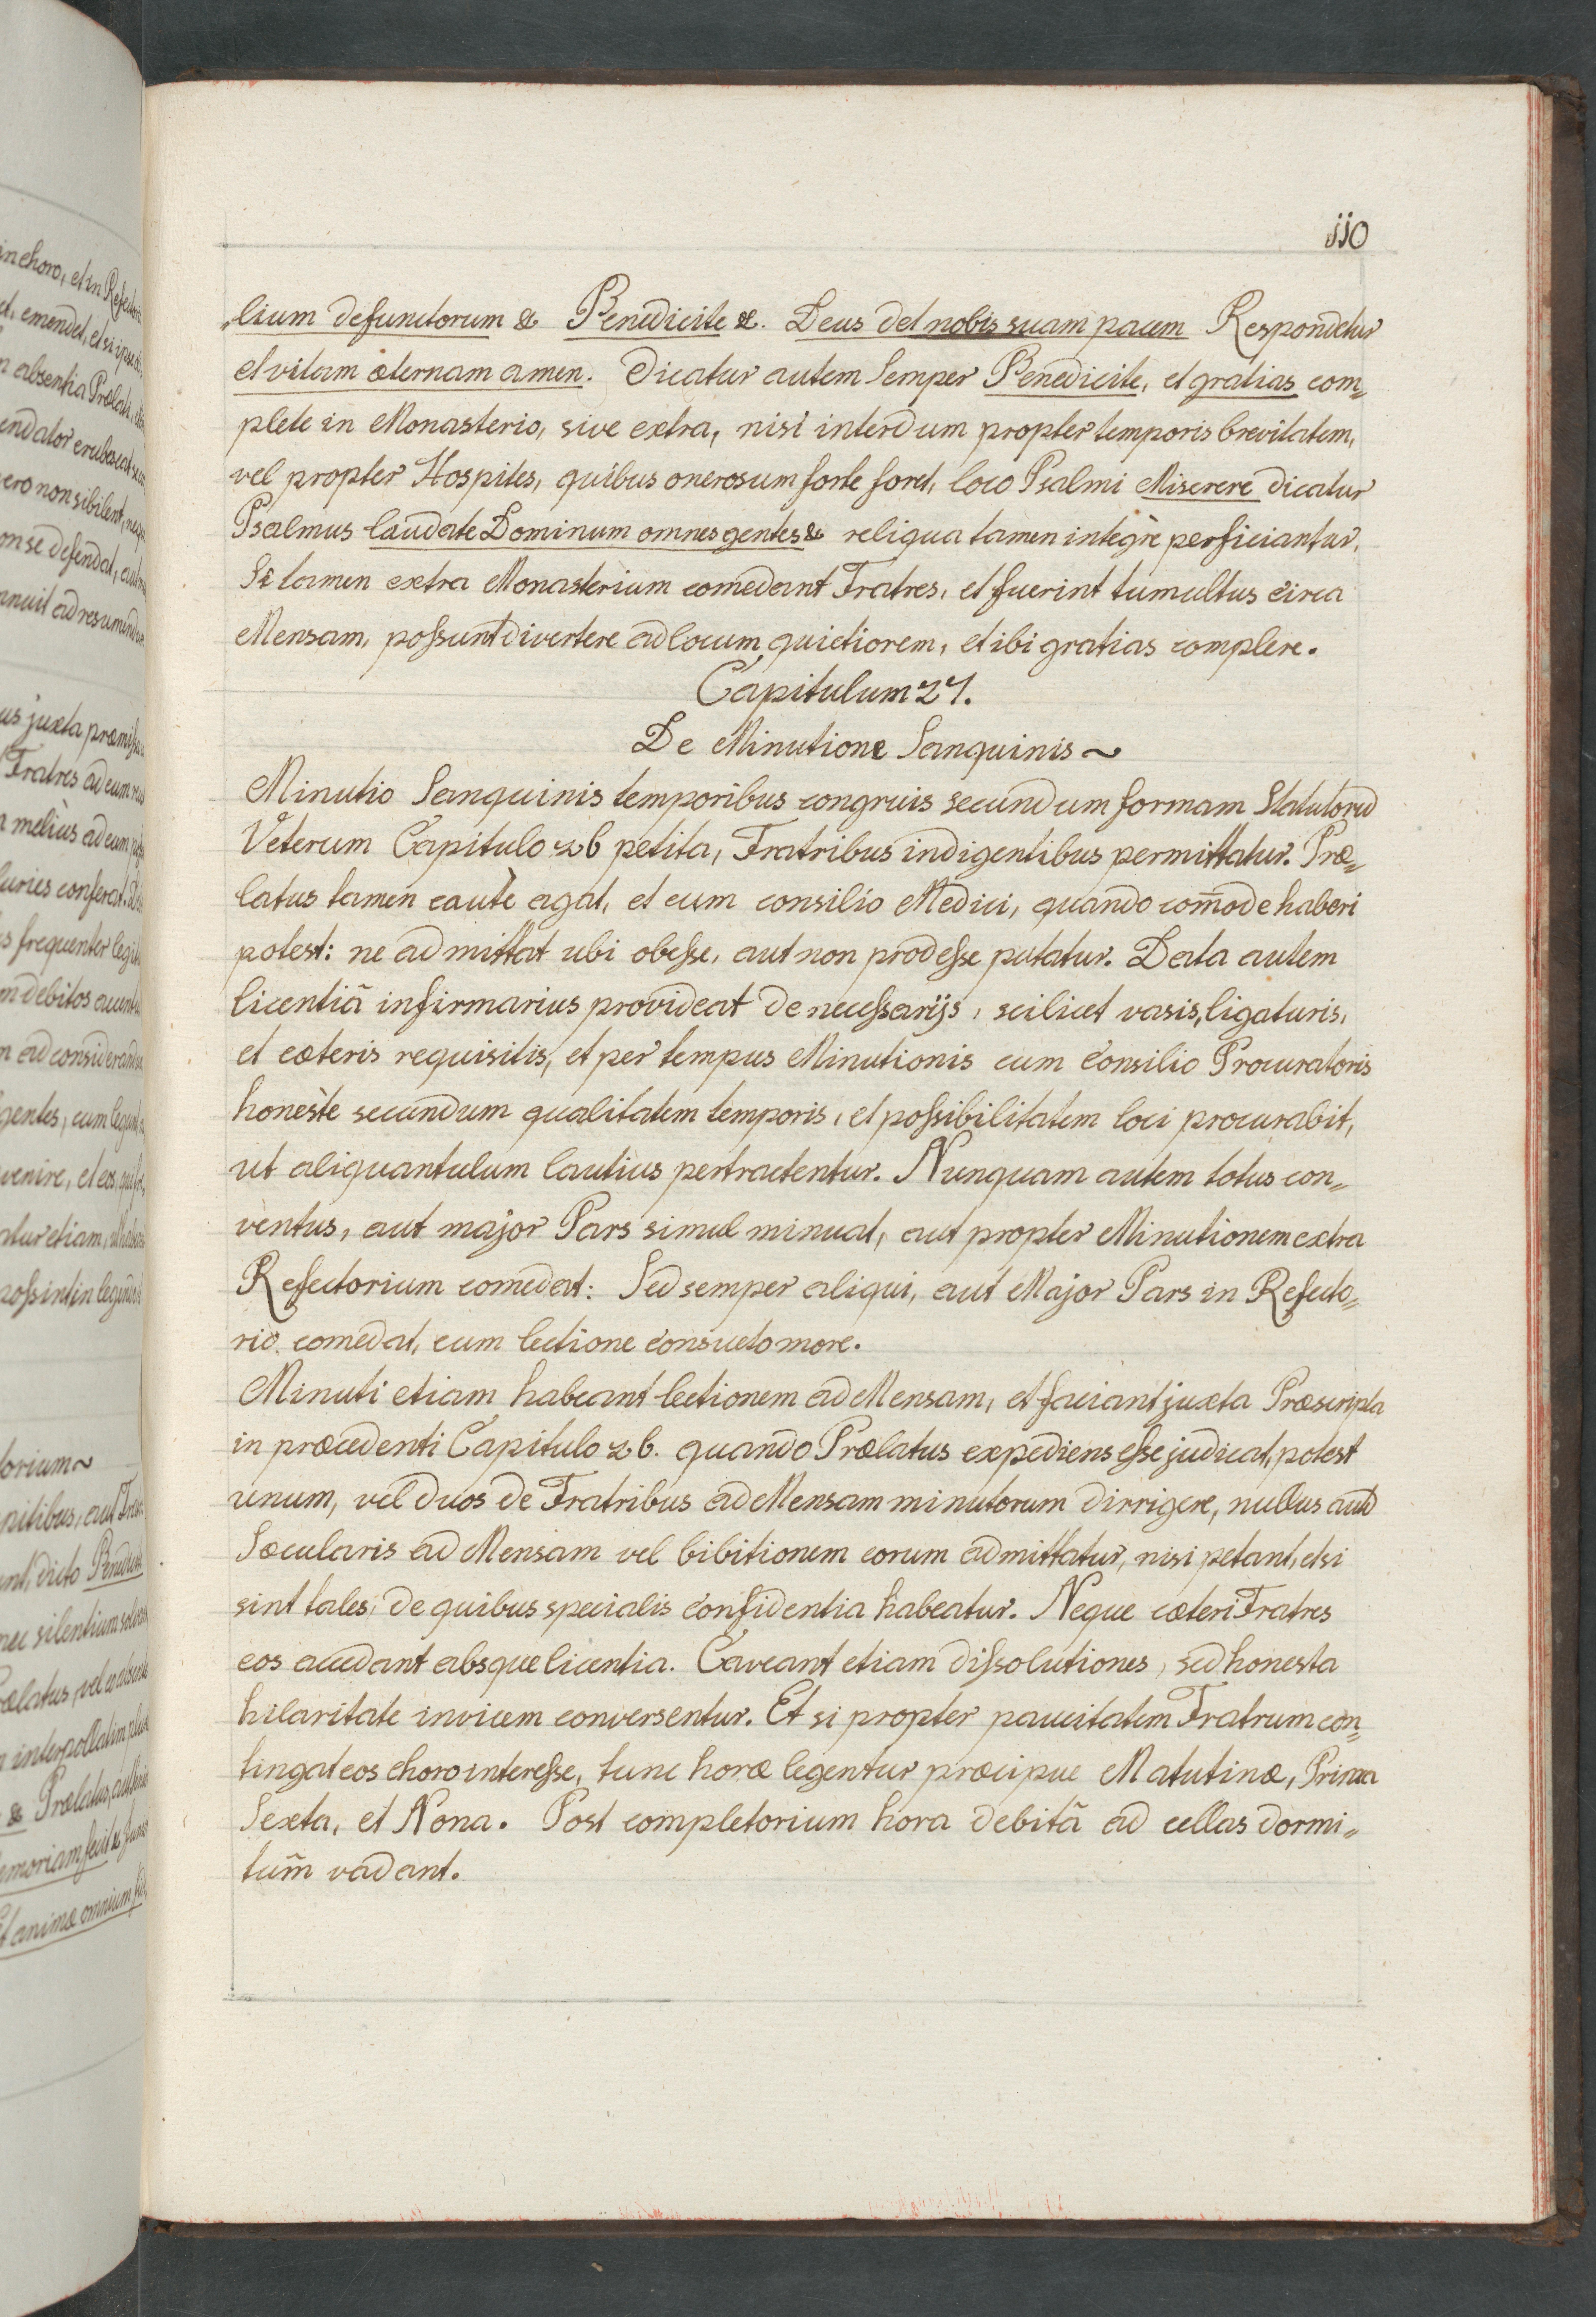 110
„lium defunctorum & Benedicite &. Deus det nobis suam pacem Respondetur
et vitam æternam amen. Dicatur autem Semper Benedicite, et gratias com„
plete in Monasterio, sive extra, nisi interdum propter temporis brevitatem,
vel propter Hospites, quibus onerosum forte foret, loco Psalmi Miserere dicatur
Psalmus laudate Dominum omnes gentes & reliqua tamen integrè perficiantur.
Si tamen extra Monasterium comedant Fratres, et fuerint tumultus circa
Mensam, possunt divertere ad locum quietiorem, et ibi gratias complere.
Capitulum 27.
De Minutione Sanguinis ~
Minutio Sanguinis temporibus congruis secundum formam Statutorū
Veterum Capitulo 26 petita, Fratribus indigentibus permittatur. Præ„
latus tamen cautè agat, et cum consilio Medici, quando com̄ode haberi
potest: ne admittat ubi obesse, aut non prodesse putatur. Data autem
licentiâ infirmarius provideat de necessarijs, scilicet vasis, ligaturis,
et cæteris requisitis, et per tempus Minutionis cum Consilio Procuratoris
honestè secundum qualitatem temporis, et possibilitatem loci procurabit,
ut aliquantulum lautius pertractentur. Nunquam autem totus con„
ventus, aut major Pars simul minuat, aut propter Minutionem extra
Refectorium comedat: Sed semper aliqui, aut Major Pars in Refecto„
rio comedat, cum lectione consueto more.
Minuti etiam habeant lectionem ad Mensam, et faciant juxta Præscripta
in præcedenti Capitulo 26. quando Prælatus expediens esse judicat, potest
unum, vel duos de Fratribus ad Mensam minutorum dirrigere, nullus autē
Sæcularis ad Mensam vel bibitionem eorum admittatur, nisi petant, et si
sint tales, de quibus specialis confidentia habeatur. Neque cæteri Fratres
eos accedant absque licentia. Caveant etiam dissolutiones, sed honesta
hilaritate invicem conversentur. Et si propter paucitatem Fratrum con„
tingat eos choro interesse, tunc horæ legentur præcipue Matutinæ, Prima
Sexta, et Nona. Post completorium hora debitâ ad cellas dormi„
tum̄ vadant.